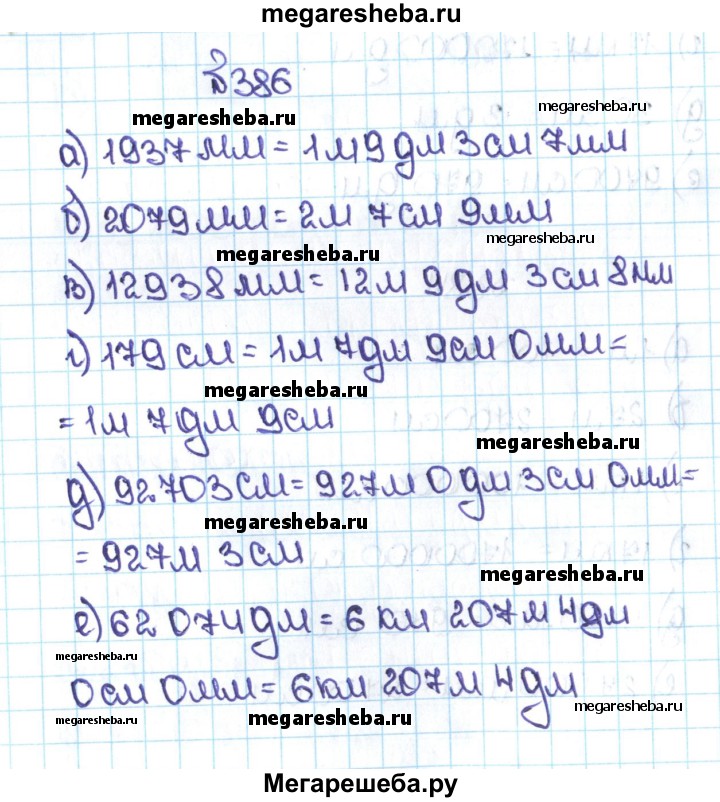 megaresheba.ru
№386
megaresheba.ru
megaresheba.ru
а) 1937мм = 1м 9дм 3см 7мм
б) 2079мм = 2м 7см 9мм
megaresheba.ru
megaresheba.ru
в) 12938мм = 12м 9дм 3см 8мм
г) 179см = 1м 7дм 9см 0мм =
megaresheba.ru
= 1м 7дм 9см
megaresheba.ru
д) 92703см = 927м 0дм 3см 0мм =
megaresheba.ru
= 927м 3см
megaresheba.ru
е) 62 074дм = 6км 207м 4дм
megaresheba.ru
0см 0мм = 6км 207м 4дм
megaresheba.ru
megaresheba.ru
megaresheba.ru
Мегарешеба.ру